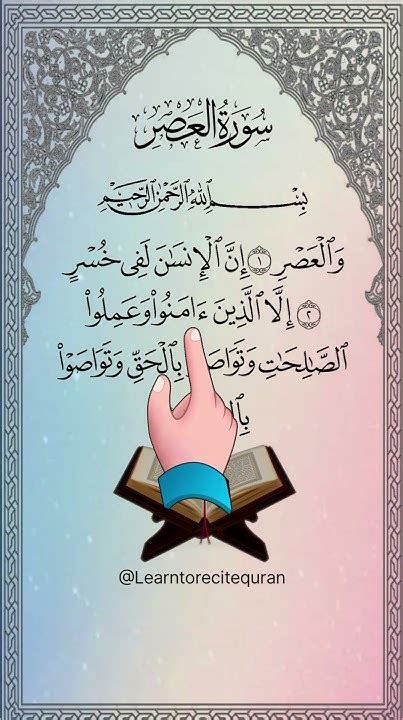 سُورَةُ الْعَصْرِ
بِسْمِ اللَّهِ الرَّحْمَٰنِ الرَّحِيمِ
وَٱلْعَصْرِ ١ إِنَّ ٱلْإِنسَٰنَ لَفِى خُسْرٍ
٢ إِلَّا ٱلَّذِينَ ءَامَنُوا۟ وَعَمِلُوا۟
ٱلصَّٰلِحَٰتِ بِٱلْحَقِّ وَتَوَاصَوْا۟
@Learntorecitequran